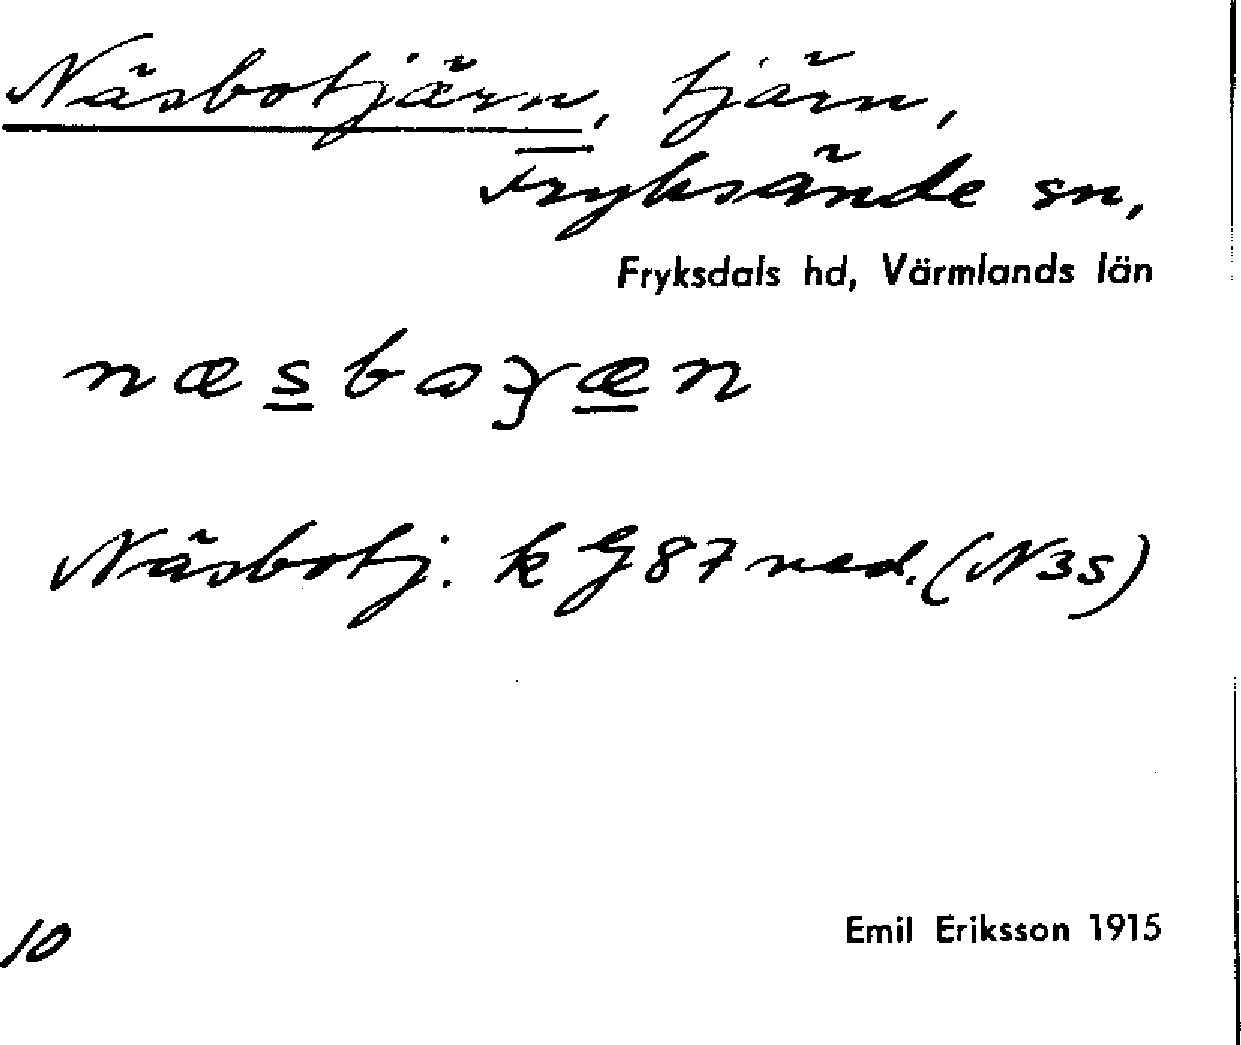 Näsbotjärn, tjärn,
Fryksände sn,
Fryksdals hd, Värmlands län
Näsbotj. k G 87 ned. (N3s)
10
Emil Eriksson 1915